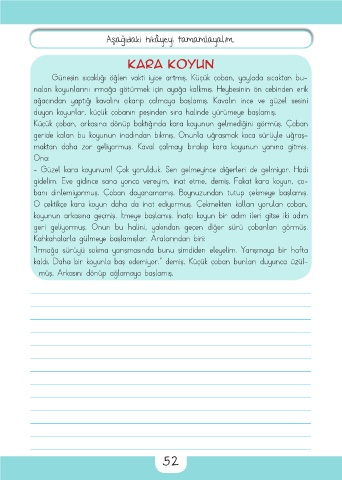 Aşağıdaki hikâyeyi tamamlayalım.
KARA KOYUN
Güneşin sıcaklığı öğlen vakti iyice artmış. Küçük çoban, yaylada sıcaktan bu-
nalan koyunlarını ırmağa götürmek için ayağa kalkmış. Heybesinin ön cebinden erik
ağacından yaptığı kavalını çıkarıp çalmaya başlamış. Kavalın ince ve güzel sesini
duyan koyunlar, küçük çobanın peşinden sıra halinde yürümeye başlamış.
Küçük çoban, arkasına dönüp baktığında kara koyunun gelmediğini görmüş. Çoban
geride kalan bu koyunun inadından bıkmış. Onunla uğraşmak koca sürüyle uğraş-
maktan daha zor geliyormuş. Kaval çalmayı bırakıp kara koyunun yanına gitmiş.
Ona:
- Güzel kara koyunum! Çok yorulduk. Sen gelmeyince diğerleri de gelmiyor. Hadi
gidelim. Eve gidince sana yonca vereyim, inat etme, demiş. Fakat kara koyun, ço-
banı dinlemiyormuş. Çoban dayanamamış. Boynuzundan tutup çekmeye başlamış.
O çektikçe kara koyun daha da inat ediyormuş. Çekmekten kolları yorulan çoban,
koyunun arkasına geçmiş. İtmeye başlamış. İnatçı koyun bir adım ileri gitse iki adım
geri geliyormuş. Onun bu halini, yakından geçen diğer sürü çobanları görmüş.
Kahkahalarla gülmeye başlamışlar. Aralarından biri:
"Irmağa sürüyü sokma yarışmasında bunu şimdiden eleyelim. Yarışmaya bir hafta
kaldı. Daha bir koyunla baş edemiyor." demiş. Küçük çoban bunları duyunca üzül-
müş. Arkasını dönüp ağlamaya başlamış.
52